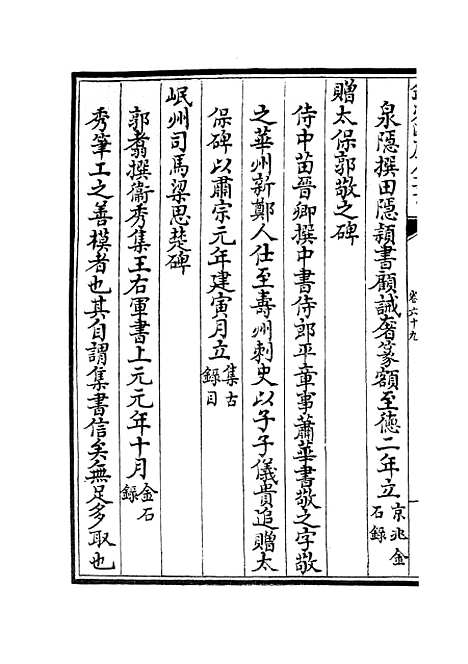 卷六十九
泉隱撰田隱頴書顧誡奢篆額至德二年立京兆金石錄
贈太保郭敬之碑
侍中苗晉卿撰中書侍郎平章事蕭華書敬之字敬
之華州新鄭人仕至壽州刺史以子子儀貴追贈太
保碑以肅宗元年建寅月立集古錄目
岷州司馬梁思楚碑
郭翥撰衞秀集王右軍書上元元年十月金石錄
秀筆工之善模者也其自謂集書信矣無足多取也